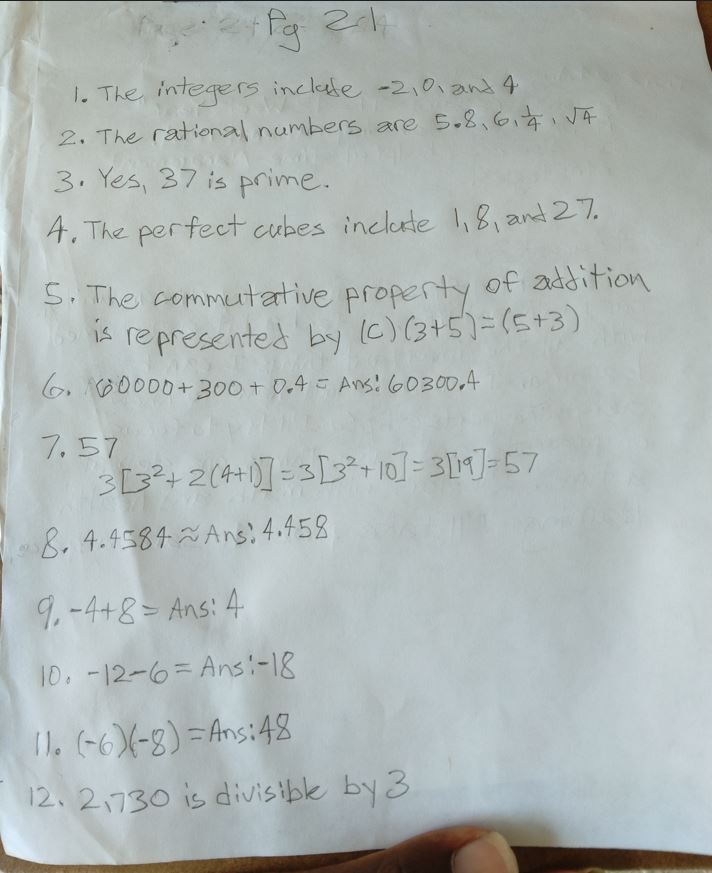 Pg 21
1. The integers include -2, 0, and 4
2. The rational numbers are 5.8, 6, 1/4, √4
3. Yes, 37 is prime.
4. The perfect cubes include 1, 8, and 27.
5. The commutative property of addition
is represented by (C) (3+5)=(5+3)
6. 60000+300+0.4= Ans: 60300.4
7. 57
3[3²+2(4+1)]=3[3²+10]=3[19]=57
8. 4.4584≈Ans: 4.458
9. -4+8= Ans: 4
10. -12-6= Ans: -18
11. (-6)(-8) =Ans: 48
12. 2,730 is divisible by 3